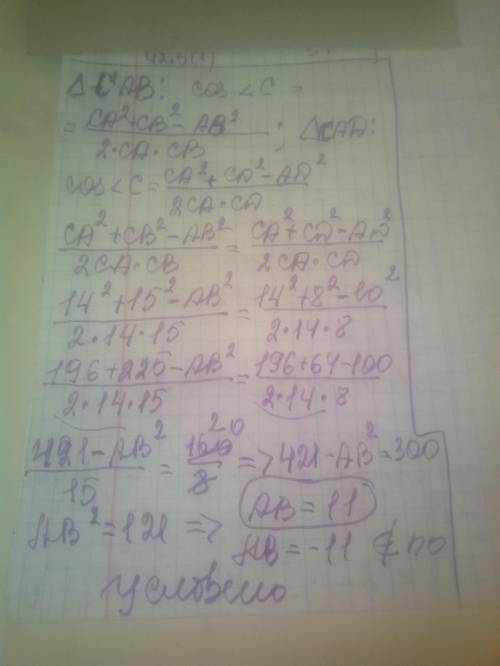 42.5(с)
Δ CAB: cos <C =
= CA²+CB²-AB² / 2·CA·CB ; ΔCAD:
cos<C = CA²+CD²-AD² / 2CA·CD
CA²+CB²-AB² / 2CA·CB = CA²+CD²-AD² / 2CA·CD
14²+15²-AB² / 2·14·15 = 14²+8²-10² / 2·14·8
196+225-AB² / 2·14·15 = 196+64-100 / 2·14·8
421-AB² / 15 = 160 20 / 8 => 421-AB²=300
AB²=121 => AB = 11
AB = -11 ∉ по
условию